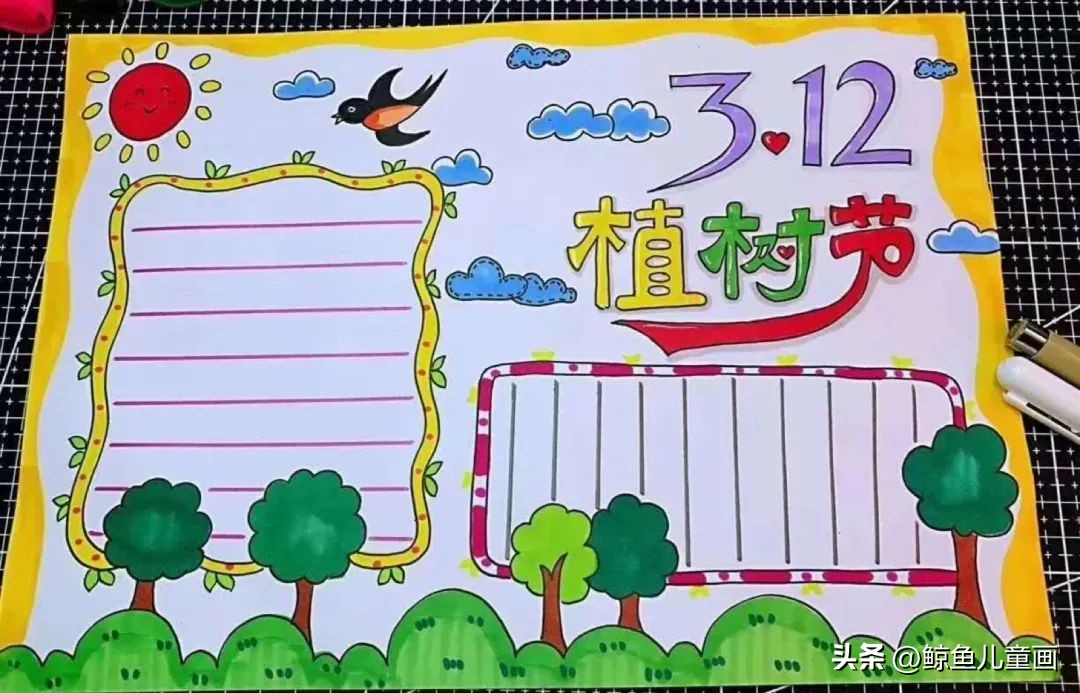 3.12
植树节
头条 @鲸鱼儿童画